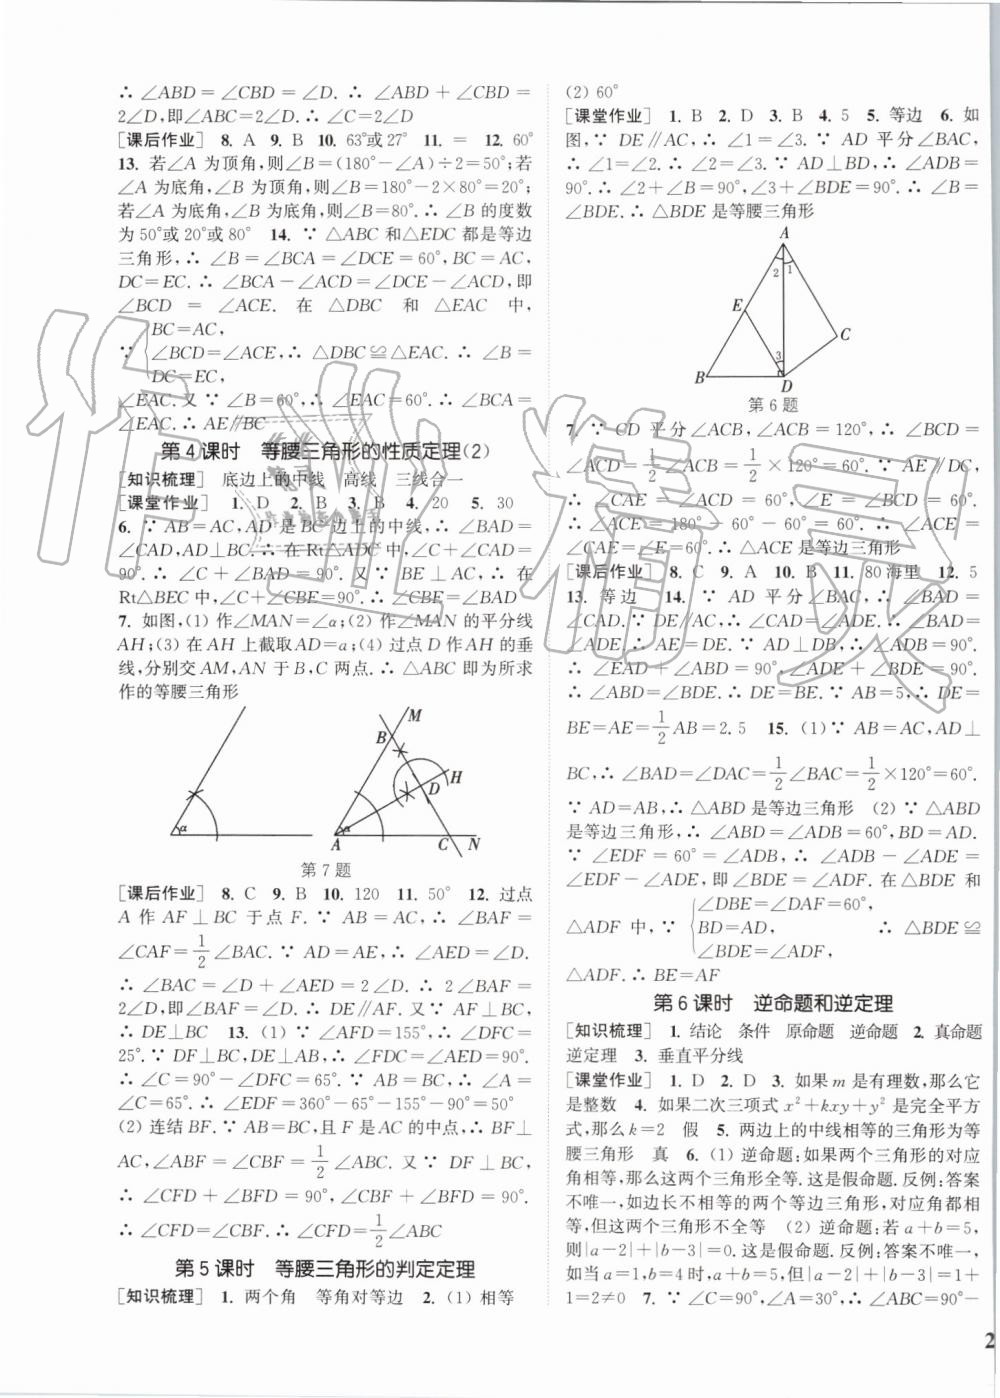 ∴ ∠ABD=∠CBD=∠D. ∴ ∠ABD+∠CBD=
2∠D,即∠ABC=2∠D. ∴ ∠C=2∠D
[课后作业] 8. A 9. B 10. 63°或27° 11. = 12. 60°
13. 若∠A 为顶角,则∠B=(180°-∠A)÷2=50°;若
∠A 为底角,∠B 为顶角,则∠B=180°-2×80°=20°;
若∠A 为底角,∠B 为底角,则∠B=80°. ∴ ∠B 的度数
为 50°或 20°或 80° 14. ∵ △ABC 和△EDC 都是等边
三角形,∴ ∠B=∠BCA=∠DCE=60°,BC=AC,
DC=EC. ∴ ∠BCA-∠ACD=∠DCE-∠ACD,即
∠BCD=∠ACE. 在 △DBC 和 △EAC 中,
BC=AC,
∵ ∠BCD=∠ACE,∴ △DBC≌△EAC. ∴ ∠B=
DC=EC,
∠EAC. 又∵ ∠B=60°,∴ ∠EAC=60°. ∴ ∠BCA=
∠EAC. ∴ AE∥BC
第 4 课时 等腰三角形的性质定理(2)
[知识梳理] 底边上的中线 高线 三线合一
[课堂作业] 1. D 2. B 3. B 4. 20 5. 30
6. ∵ AB=AC,AD 是 BC 边上的中线,∴ ∠BAD=
∠CAD,AD⊥BC. ∴ 在 Rt△ADC 中,∠C+∠CAD=
90°. ∴ ∠C+∠BAD=90°. 又∵ BE⊥AC,∴ 在
Rt△BEC 中,∠C+∠CBE=90°. ∴ ∠CBE=∠BAD
7. 如图,(1) 作∠MAN=∠α;(2) 作∠MAN 的平分线
AH;(3) 在 AH 上截取AD=a;(4) 过点 D 作AH 的垂
线,分别交 AM,AN 于 B,C 两点. ∴ △ABC 即为所求
作的等腰三角形
α A B C D H M N α
第 7 题
[课后作业] 8. C 9. B 10. 120 11. 50° 12. 过点
A 作 AF⊥BC 于点 F. ∵ AB=AC,∴ ∠BAF=
∠CAF=1/2∠BAC. ∵ AD=AE,∴ ∠AED=∠D.
∴ ∠BAC=∠D+∠AED=2∠D. ∴ 2∠BAF=
2∠D,即∠BAF=∠D. ∴ DE∥AF. 又∵ AF⊥BC,
∴ DE⊥BC 13. (1) ∵ ∠AFD=155°,∴ ∠DFC=
25°. ∵ DF⊥BC,DE⊥AB,∴ ∠FDC=∠AED=90°.
∴ ∠C=90°-∠DFC=65°. ∵ AB=BC,∴ ∠A=
∠C=65°. ∴ ∠EDF=360°-65°-155°-90°=50°
(2) 连结 BF. ∵ AB=BC,且 F 是 AC 的中点,∴ BF⊥
AC,∠ABF=∠CBF=1/2∠ABC. 又∵ DF⊥BC,
∴ ∠CFD+∠BFD=90°,∠CBF+∠BFD=90°.
∴ ∠CFD=∠CBF. ∴ ∠CFD=1/2∠ABC
第 5 课时 等腰三角形的判定定理
[知识梳理] 1. 两个角 等角对等边 2. (1) 相等
(2) 60°
[课堂作业] 1. B 2. D 3. B 4. 5 5. 等边 6. 如
图,∵ DE∥AC,∴ ∠1=∠3. ∵ AD 平分∠BAC,
∴ ∠1=∠2. ∴ ∠2=∠3. ∵ AD⊥BD,∴ ∠ADB=
90°. ∴ ∠2+∠B=90°,∠3+∠BDE=90°. ∴ ∠B=
∠BDE. ∴ △BDE 是等腰三角形
A 2 1 E C 3 B D
第 6 题
7. ∵ CD 平分∠ACB,∠ACB=120°,∴ ∠BCD=
∠ACD=1/2∠ACB=1/2×120°=60°. ∵ AE∥DC,
∴ ∠CAE=∠ACD=60°,∠E=∠BCD=60°.
∴ ∠ACE=180°-60°-60°=60°. ∴ ∠ACE=
∠CAE=∠E=60°. ∴ △ACE 是等边三角形
[课后作业] 8. C 9. A 10. B 11. 80 海里 12. 5
13. 等边 14. ∵ AD 平分∠BAC,∴ ∠BAD=
∠CAD. ∵ DE∥AC,∴ ∠CAD=∠ADE. ∴ ∠BAD=
∠ADE. ∴ AE=DE. ∵ AD⊥DB,∴ ∠ADB=90°.
∴ ∠EAD+∠ABD=90°,∠ADE+∠BDE=90°.
∴ ∠ABD=∠BDE. ∴ DE=BE. ∵ AB=5,∴ DE=
BE=AE=1/2AB=2.5 15. (1) ∵ AB=AC,AD⊥
BC,∴ ∠BAD=∠DAC=1/2∠BAC=1/2×120°=60°.
∵ AD=AB,∴ △ABD 是等边三角形 (2) ∵ △ABD
是等边三角形,∴ ∠ABD=∠ADB=60°,BD=AD.
∵ ∠EDF=60°=∠ADB,∴ ∠ADB-∠ADE=
∠EDF-∠ADE,即∠BDE=∠ADF. 在△BDE 和
∠DBE=∠DAF=60°,
△ADF 中,∵ BD=AD, ∴ △BDE≌
∠BDE=∠ADF,
△ADF. ∴ BE=AF
第 6 课时 逆命题和逆定理
[知识梳理] 1. 结论 条件 原命题 逆命题 2. 真命题
逆定理 3. 垂直平分线
[课堂作业] 1. D 2. D 3. 如果 m 是有理数,那么它
是整数 4. 如果二次三项式 x²+kxy+y² 是完全平方
式,那么 k=2 假 5. 两边上的中线相等的三角形为等
腰三角形 真 6. (1) 逆命题:如果两个三角形的对应
角相等,那么这两个三角形全等. 这是假命题. 反例:答案
不唯一,如边长不相等的两个等边三角形,对应角都相
等,但这两个三角形不全等 (2) 逆命题:若 a+b=5,
则|a-2|+|b-3|=0. 这是假命题. 反例:答案不唯一,
如当 a=1,b=4 时,a+b=5,但|a-2|+|b-3|=1+
1=2≠0 7. ∵ ∠C=90°,∠A=30°,∴ ∠ABC=90°-
2
作业精灵